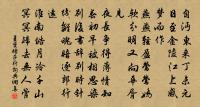 自沔東来丁未元
日至金陵江上感
夢而作
燕燕輕盈鶯鶯嬌
軟分明又向華胥
見
夜長爭得薄情知
春初早被相思染
別後書辭別時針
綫離魂暗逐郎行遠
淮南皓月冷千山
冥冥歸去無人管